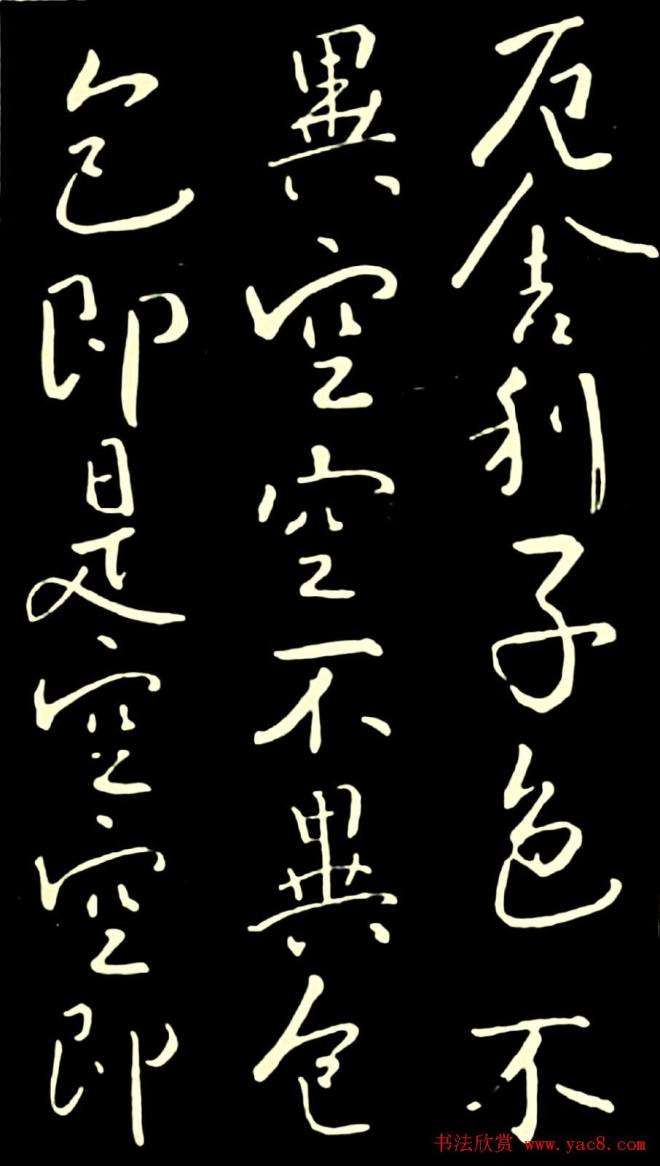 厄舍利子色不
異空空不異色
色即是空空即
书法欣赏 www.yac8.com